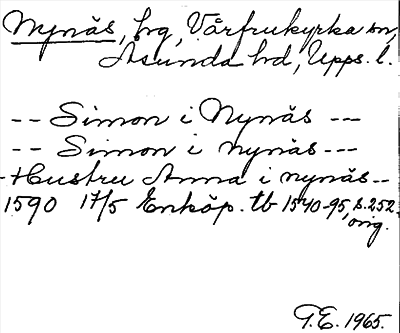 Nynäs, hg, Vårfrukyrka sn,
Åsunda hd, Upps. l.
-- Simon i Nynäs ---
-- Simon i nynäs ---
- Hustru Anna i nynäs --
1590 17/5 Enköp. tb 1540-95, s. 252.
orig.
T.E. 1965.